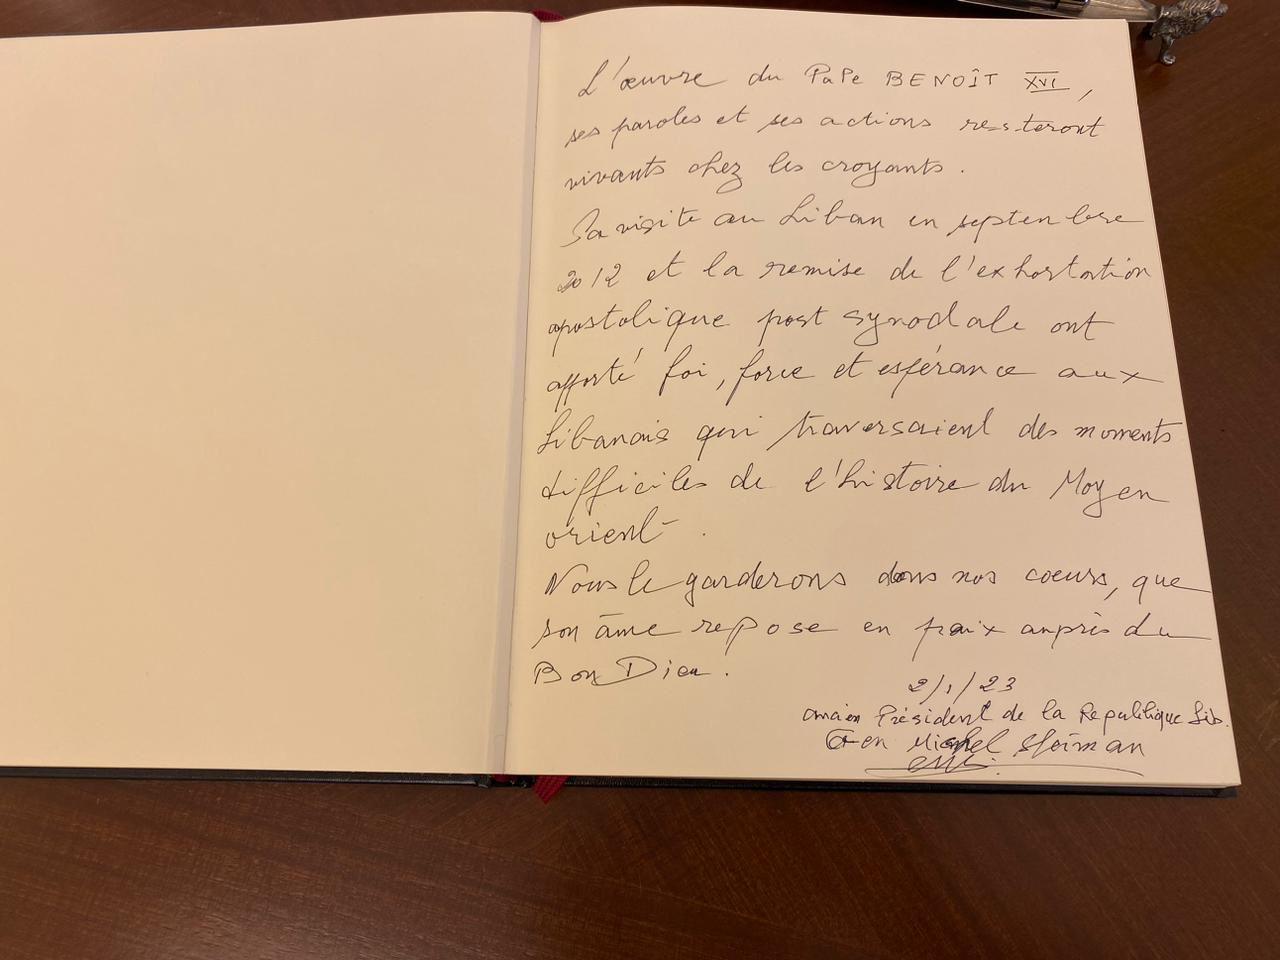 L'œuvre du Pape BENOÎT XVI,
ses paroles et ses actions resteront
vivants chez les croyants.
Sa visite au Liban en septembre
2012 et la remise de l'exhortation
apostolique post synodale ont
apporté foi, force et espérance aux
Libanais qui traversaient des moments
difficiles de l'histoire du Moyen
orient.
Nous le garderons dans nos coeurs, que
son âme repose en paix auprès du
Bon Dieu.
2/1/23
ancien Président de la Republique Lib.
Gen Michel Sleiman